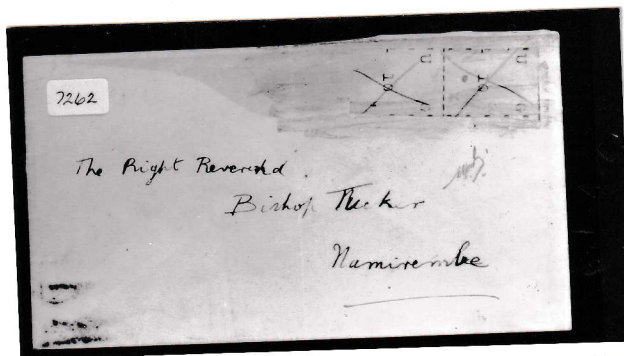 7262
U U
10 10
G G
The Right Reverend
Bishop Tucker
Namirembe